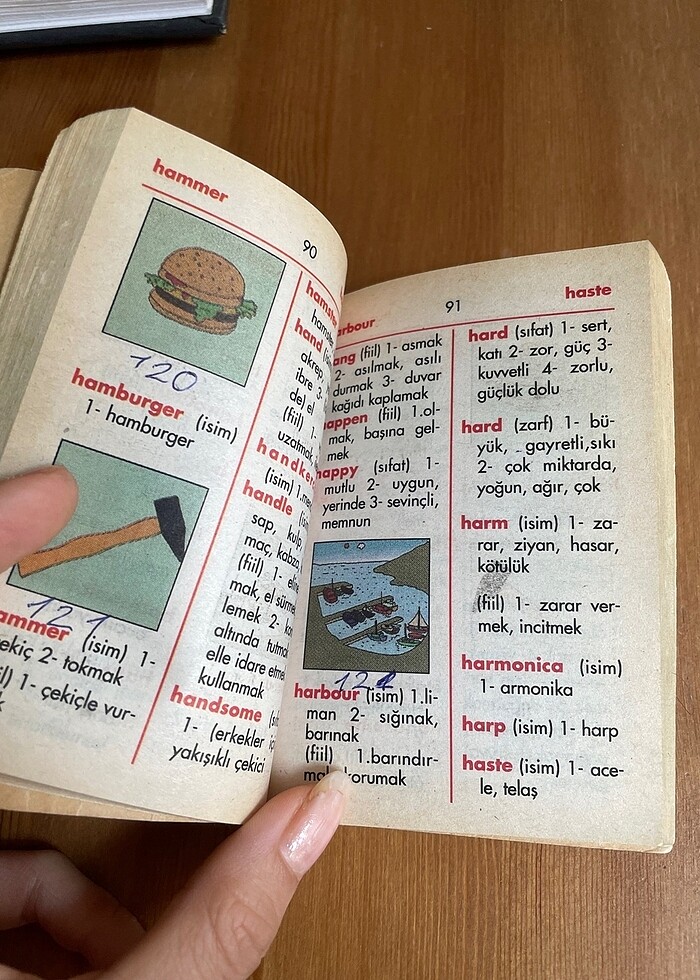 hammer
90
120
hamburger (isim)
1- hamburger
121
(isim) 1-
2- tokmak
1- çekiçle vur-
hand
akrep
ibre 3-
el
(fiil) 1-
(isim)
handle
sap, kulp,
maç, kabza,
(fiil) 1-
mak, el sürme
lemek 2-
altında tutma
elle idare etme
kullanmak
handsome
1- (erkekler
yakışıklı çekici
91
haste
(fiil) 1- asmak
2- asılmak, asılı
durmak 3- duvar
kağıdı kaplamak
(fiil) 1.ol-
mak, başına gel-
mek
(sıfat) 1-
mutlu 2- uygun,
yerinde 3- sevinçli,
memnun
harbour (isim) 1.li-
man 2- sığınak,
barınak
(fiil) 1.barındır-
korumak
hard (sıfat) 1- sert,
katı 2- zor, güç 3-
kuvvetli 4- zorlu,
güçlük dolu
hard (zarf) 1- bü-
yük, gayretli,sıkı
2- çok miktarda,
yoğun, ağır, çok
harm (isim) 1- za-
rar, ziyan, hasar,
kötülük
(fiil) 1- zarar ver-
mek, incitmek
harmonica (isim)
1- armonika
harp (isim) 1- harp
haste (isim) 1- ace-
le, telaş